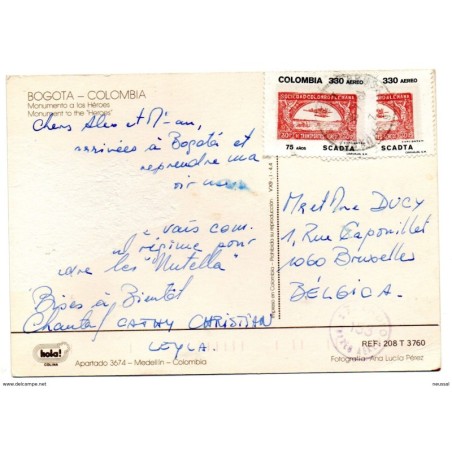 BOGOTA – COLOMBIA
Monumento a los Héroes
Monument to the "Heroes"
Chers Alex et
arrivées à Bogotá et
reprendre ma
vais com
régime pour
les "Nutella"
Bises à Bientôt
Chantal CATHY CHRISTIAN
LEYLA.
hola!
COLINA
Apartado 3674 – Medellín – Colombia
Impreso en Colombia - Prohibida su reproducción
COLOMBIA 330 AEREO
330 AEREO
SOCIEDAD COLOMBO ALEMANA
75 AÑOS SCADTA
SCADTA
Mr et Mme DUCY
1, Rue Capouillet
1060 Bruxelles
BÉLGICA.
REF: 208 T 3760
Fotografía: Ana Lucía Pérez
neussal